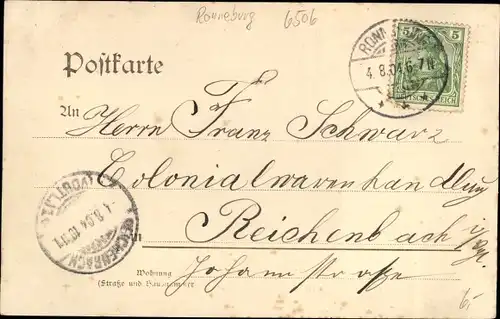 Ronneburg 6506
Postkarte
An
Herrn Franz Schwarz
Colonialwarenhandlung
Reichenbach i/V.
Wohnung
(Straße und Hausnummer)
Johannstrasse
RONNEBURG
4.8.04.6-7N.
5 5
DEUTSCHES REICH
REICHENBACH
(VOGTL.)
4.8.04
6,-